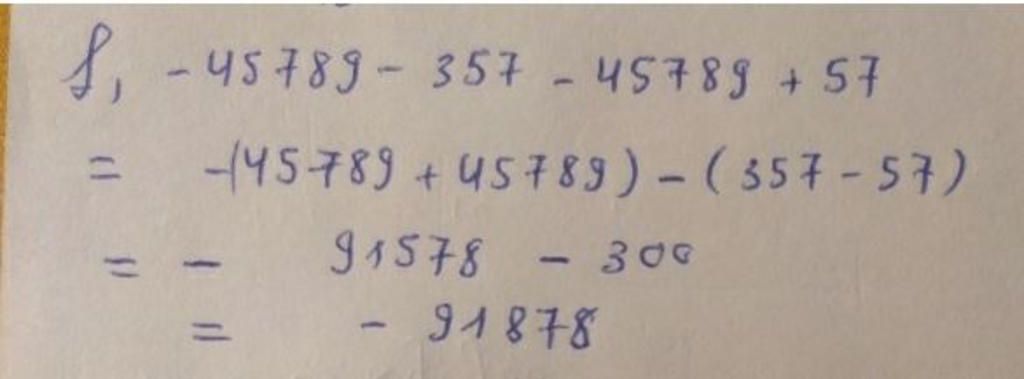 f, - 45789 - 357 - 45789 + 57
= -(45789 + 45789) - (357 - 57)
= - 91578 - 300
= - 91878